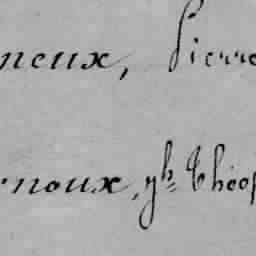 neux, Pierre
rnoux, yh= Théop